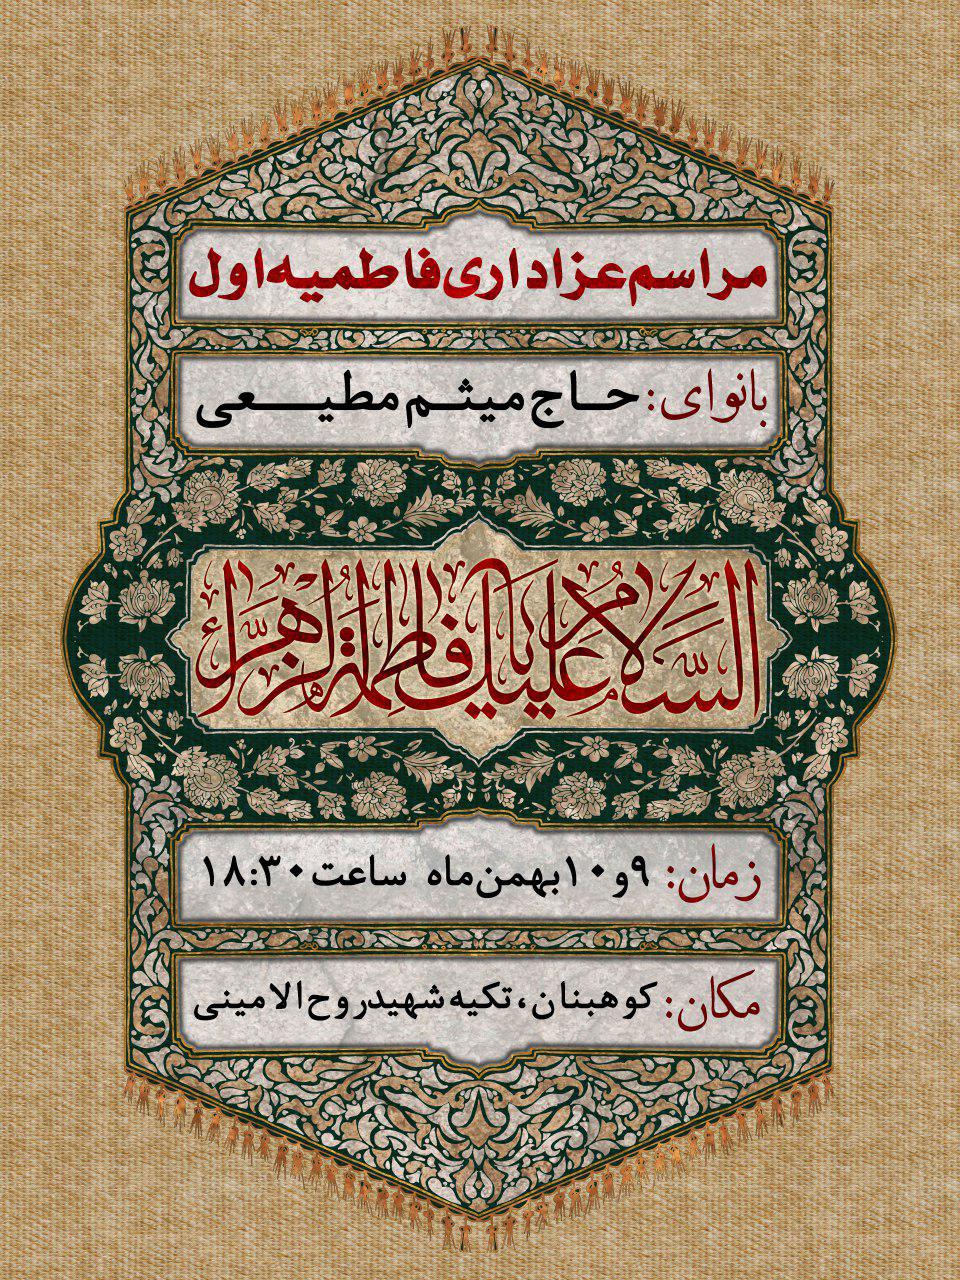 مراسم عزاداری فاطمیه اول
بانوای: حاج میثم مطیعی
السلام علیک یا فاطمة الزهراء
زمان: ۹و۱۰بهمن‌ماه ساعت ۱۸:۳۰
مکان: کوهبنان، تکیه شهیدروح‌الامینی